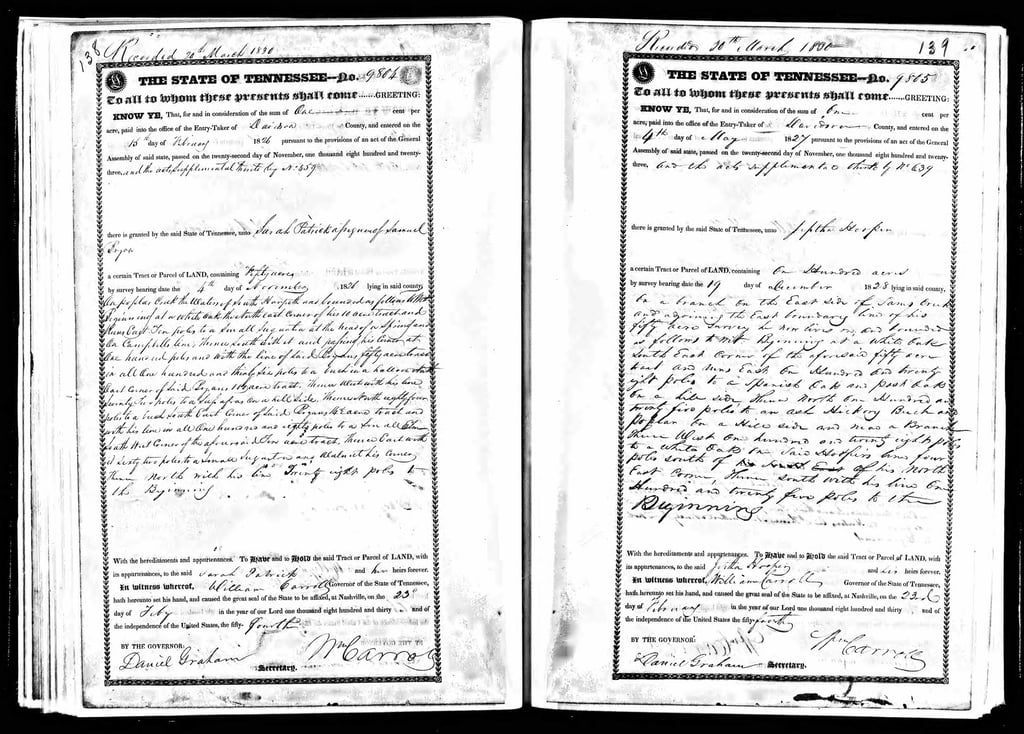 138
Recorded 20th March 1830
THE STATE OF TENNESSEE—No. 9864
To all to whom these presents shall come.......GREETING:
KNOW YE, That, for and in consideration of the sum of One cent per
acre, paid into the office of the Entry-Taker of Davidson County, and entered on the
15th day of February 1826 pursuant to the provisions of an act of the General
Assembly of said state, passed on the twenty-second day of November, one thousand eight hundred and twenty-
three, and the acts supplemental thereto by No 559
there is granted by the said State of Tennessee, unto Sarah Patrick assignee of Samuel
a certain Tract or Parcel of LAND, containing Fifty acres
by survey bearing date the 4th day of November 1826 lying in said county,
On poplar Creek the Waters of South Harpeth and bounded as follows to Wit
Beginning at a White Oak the South east Corner of his 10 acre tract and
Runs East Ten poles to a Small Sugartree at the head of a Spring and
On Campbells line, Thence South with it and passing his Corner at
One hundred poles and with the line of Said fifty acre tract
in all One hundred and thirty Six poles to a in a hollow
East Corner of Said acre tract. Thence West with his line
Twenty Two poles to a Stake on a hill Side. Thence North eighty four
poles to a South East Corner of Said acre tract and
with his line in all One hundred and eighty poles to a
South West Corner of the aforesaid Ten acre tract, Thence East with
it Sixty two poles to a Small Sugartree and Walnut his Corner
Thence North with his line Twenty eight poles to
the Beginning
With the hereditaments and appurtenances. To Have and to Hold the said Tract or Parcel of LAND, with
its appurtenances, to the said Sarah Patrick and her heirs forever.
In witness whereof, William Carroll Governor of the State of Tennessee,
hath hereunto set his hand, and caused the great seal of the State to be affixed, at Nashville, on the 23d
day of Feby in the year of our Lord one thousand eight hundred and thirty and of
the independence of the United States, the fifty-fourth
BY THE GOVERNOR:
Wm Carroll
Daniel Graham Secretary.
Recorded 20th March 1830
139
THE STATE OF TENNESSEE—No. 9865
To all to whom these presents shall come.......GREETING:
KNOW YE, That, for and in consideration of the sum of One cent per
acre, paid into the office of the Entry-Taker of Davidson County, and entered on the
4th day of May 1827 pursuant to the provisions of an act of the General
Assembly of said state, passed on the twenty-second day of November, one thousand eight hundred and twenty-
three, and the acts supplemental thereto by No 639
there is granted by the said State of Tennessee, unto Jeptha Hooper
a certain Tract or Parcel of LAND, containing One Hundred acres
by survey bearing date the 19 day of December 1828 lying in said county,
On a branch on the East side of Sams Creek
and adjoining the East boundary line of his
fifty acre survey he now lives on and bounded
as follows to Wit Beginning at a White Oak
South East Corner of the aforesaid fifty acre
tract and runs East One Hundred and twenty
eight poles to a Spanish Oak and post Oak
On a hill side Thence North One Hundred and
twenty five poles to an ash Hickory Buck and
Poplar on a Hill side and near a Branch
Thence West One hundred and twenty eight poles
to a White Oak On said Hoopers line four
poles south of his North
East Corner, Thence south with his line One
Hundred and twenty five poles to the
Beginning
With the hereditaments and appurtenances. To Have and to Hold the said Tract or Parcel of LAND, with
its appurtenances, to the said Jeptha Hooper and his heirs forever.
In witness whereof, William Carroll Governor of the State of Tennessee,
hath hereunto set his hand, and caused the great seal of the State to be affixed, at Nashville, on the 23d
day of February in the year of our Lord one thousand eight hundred and thirty and of
the independence of the United States the fifty-fourth
BY THE GOVERNOR:
Wm Carroll
Daniel Graham Secretary.